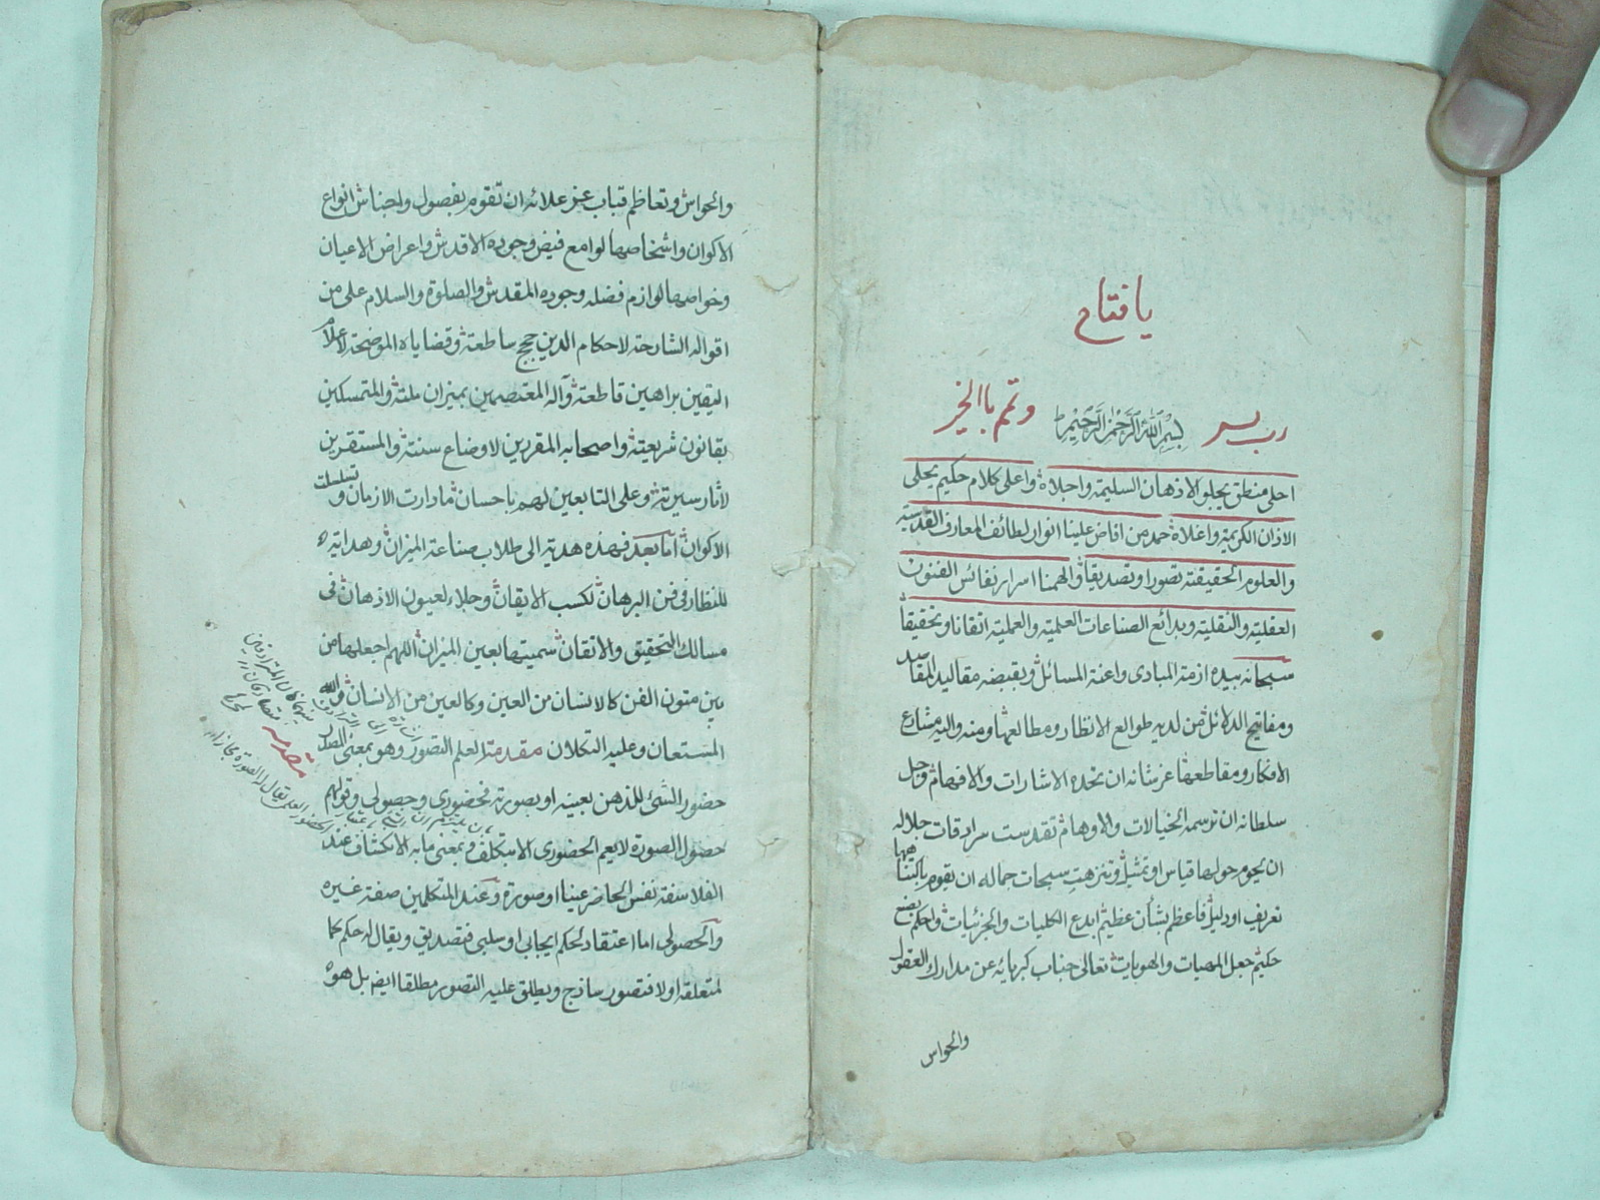 يا فتاح
رب يسر بسم الله الرحمن الرحيم وتمم بالخير
احلى منطق يجلو الاذهان السليمة واجلاه واعلى كلام حكيم يحلى
الاذان الكريمة واغلاه حمد من افاض علينا انوار لطائف المعارف القدسية
والعلوم الحقيقته تصورا وتصديقا والهمنا اسرار نفائس الفنون
العقلية والنقلية وبدائع الصناعات العلمية والعملية اتقانا وتحقيقا
سبحانه بيده ازمة المبادى واعنة المسائل وبقبضه مقاليد المقاصد
ومفاتيح الدلائل من لديه طوالع الانظار ومطالعها ومنه واليه مشارع
الافكار ومقاطعها عز شانه ان تحده الاشارات والافهام وجل
سلطانه ان ترسمه الخيالات والاوهام تقدست سرادقات جلاله
ان يحوم حولها قياس او تمثيل وتنزهت سبحات جماله ان يقوم باكتناهها
تعريف او دليل فاعظم بشأن عظيم ابدع الكليات والجزئيات واحكم بصنع
حكيم جعل المهيات والهويات تعالى جناب كبريائه عن مدارك العقول
والحواس
والحواس وتعاظم قباب عز علائه ان تقوم بفصول واجناس انواع
الاكوان واشخاصها لوامع فيض وجوده الاقدس واعراض الاعيان
وخواصها لوازم فضله وجوده المقدس والصلوة والسلام على من
اقواله الشارحة لاحكام الدين حجج ساطعة وقضاياه الموضحة لاعلام
اليقين براهين قاطعة وآله المعتصمين بميزان ملته والمتمسكين
بقانون شريعته واصحابه المقررين لاوضاع سنته والمستقرين
لآثار سيرته وعلى التابعين لهم باحسان ما دارت الازمان وتسلسلت
الاكوان اما بعد فهذه هدية الى طلاب صناعة الميزان وهداية
للنظار فى فن البرهان لكسب الايقان وجلاء لعيون الاذهان فى
مسالك التحقيق والاتقان سميتها بعين الميزان اللهم اجعلها من
بين متون الفن كالانسان من العين وكالعين من الانسان والله
المستعان وعليه التكلان مقدمة العلم التصور وهو بمعنى
حضور الشئ للذهن بعينه او بصورته فحضورى وحصولى وقولهم
حصول الصورة لا يعم الحضورى الا بتكلف وبمعنى ما به الانكشاف عند
الفلاسفة نفس الحاضر عينا او صورة وعند المتكلمين صفة غيره
والحصولى اما اعتقاد لحكم ايجابى او سلبى فتصديق ويقال له حكم كما
لمتعلقه اولا فتصور ساذج ويطلق عليه التصور مطلقا ايضا بل هو